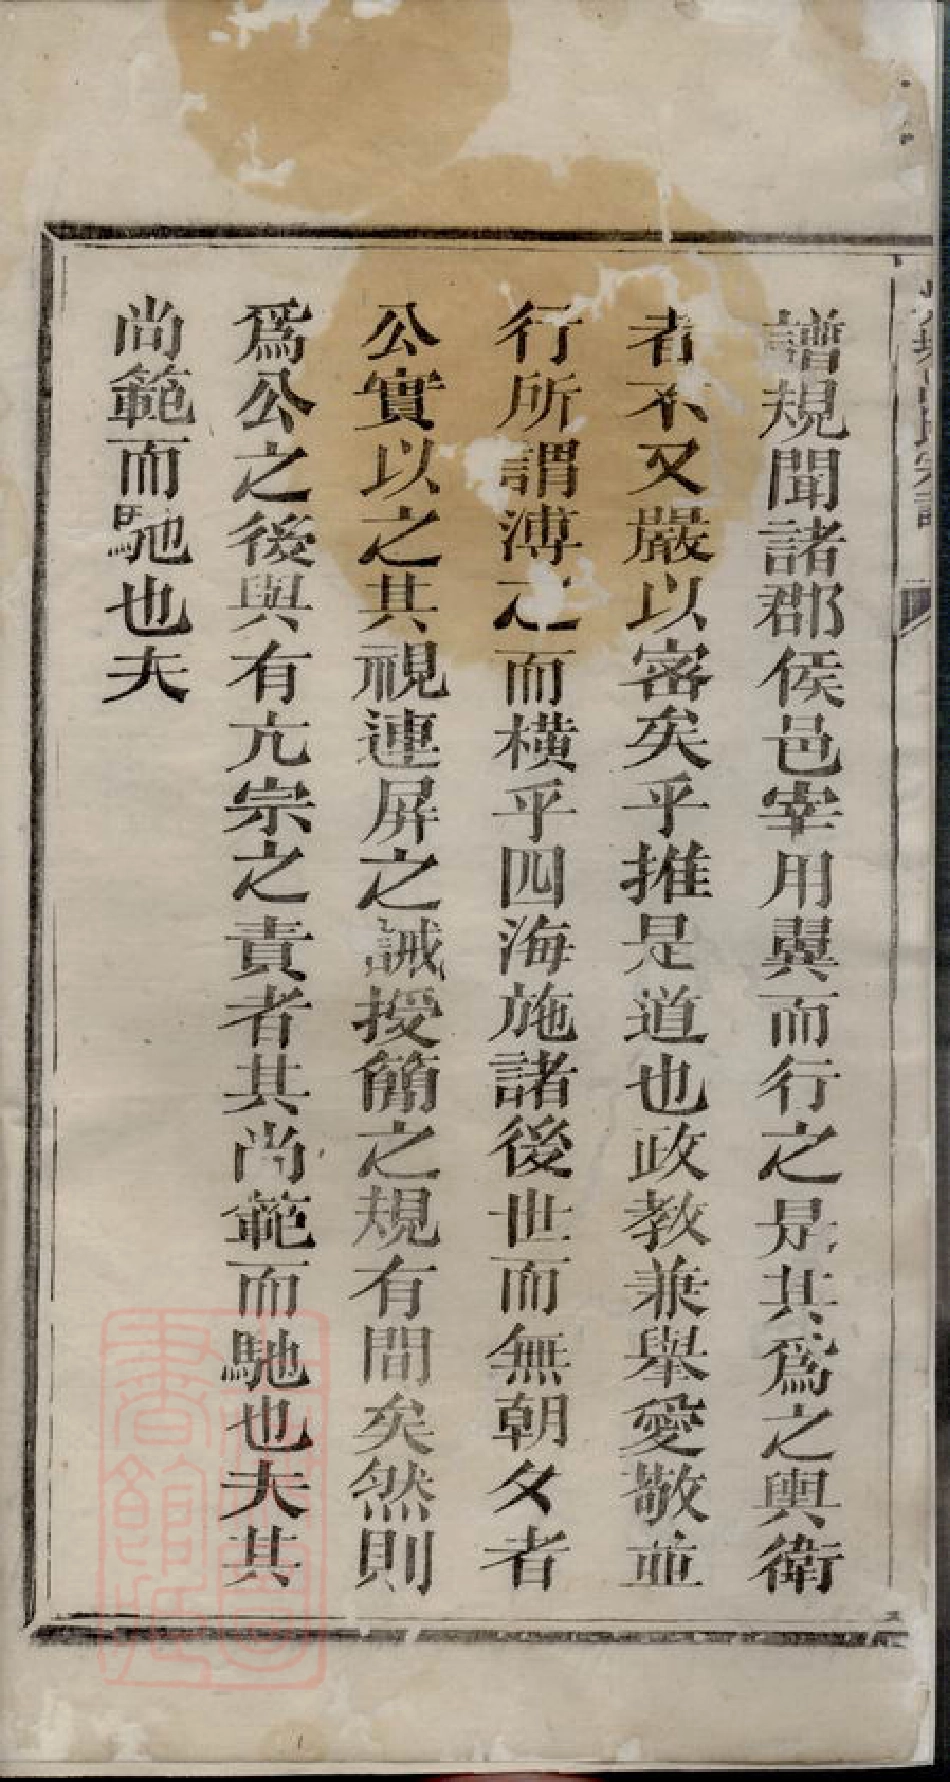 譜規聞諸郡侯邑宰用翼而行之是其爲之輿衛
者不又嚴以密矣乎推是道也政教兼舉愛敬並
行所謂溥之而橫乎四海施諸後世而無朝夕者
公實以之其視連屏之誡授簡之規有間矣然則
爲公之後與有亢宗之責者其尚範而馳也夫其
尚範而馳也夫
氏宗譜